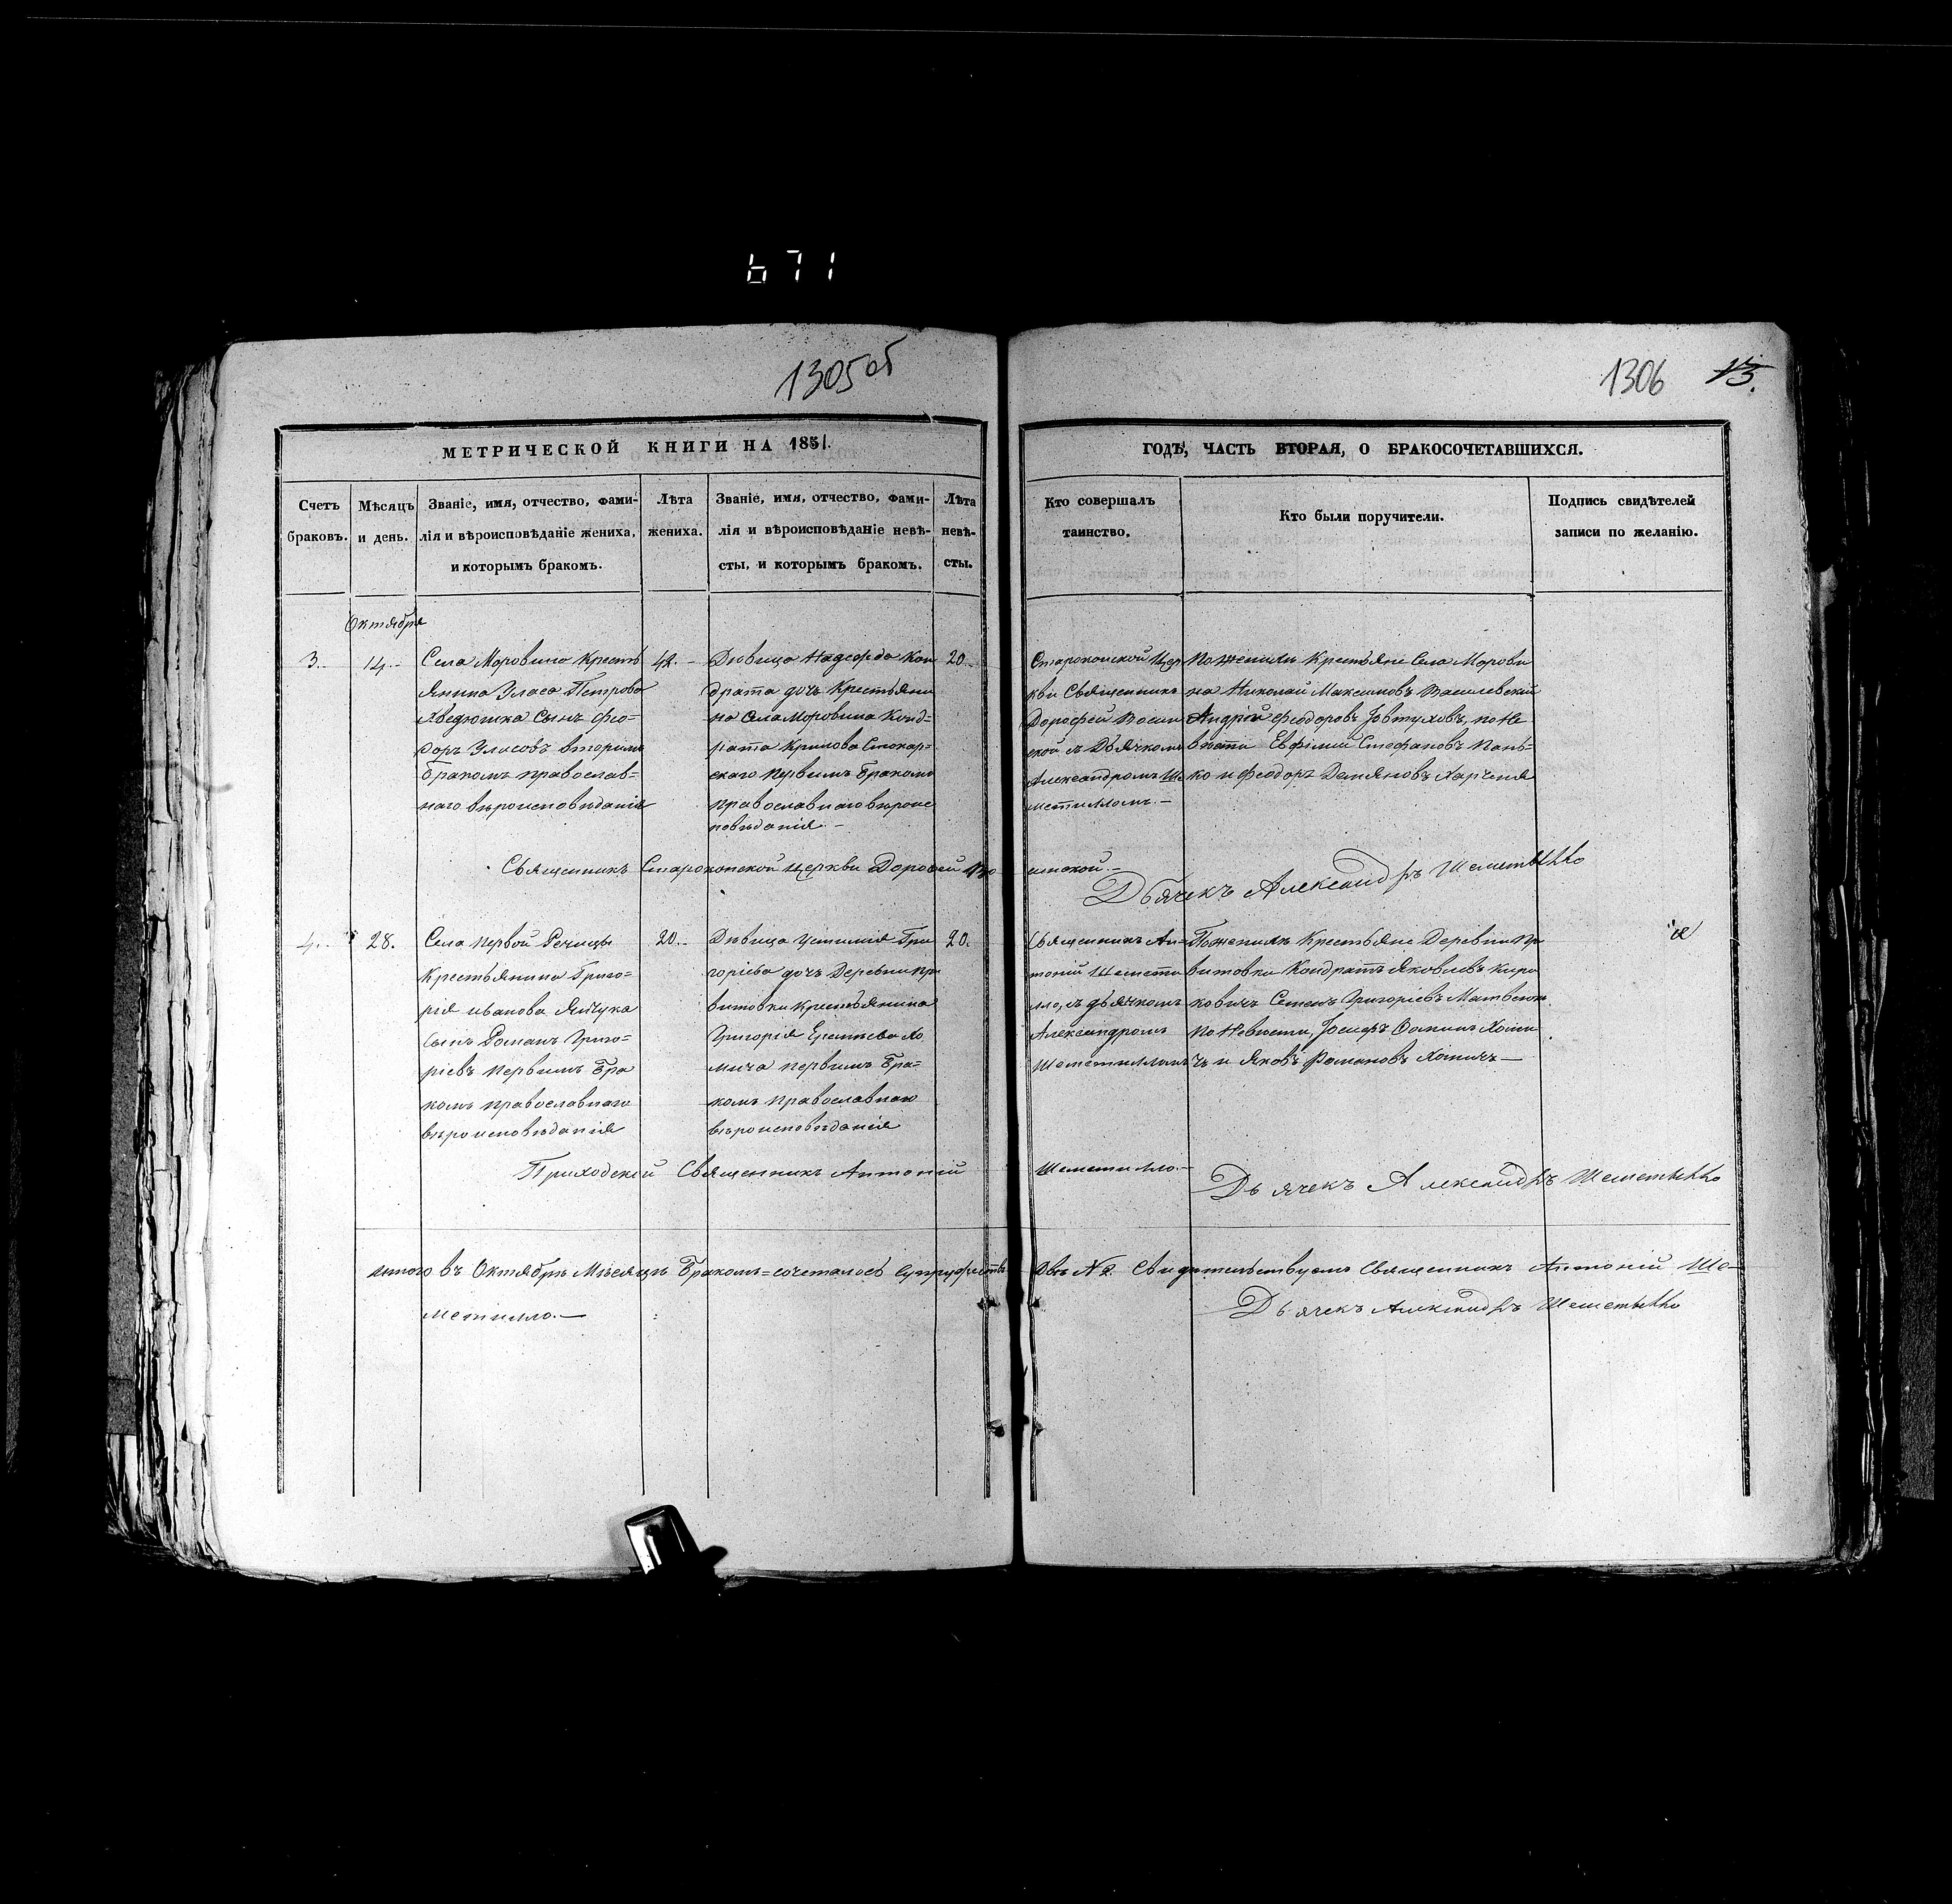 671
1305об
1306 13.
МЕТРИЧЕСКОЙ КНИГИ НА 1851.
ГОДЪ, ЧАСТЬ ВТОРАЯ, О БРАКОСОЧЕТАВШИХСЯ.
Счетъ браковъ.
Мѣсяцъ и день.
Званіе, имя, отчество, фами-
лія и вѣроисповѣданіе жениха,
и которымъ бракомъ.
Лѣта
жениха.
Званіе, имя, отчество, фами-
лія и вѣроисповѣданіе невѣ-
сты, и которымъ бракомъ.
Лѣта
невѣ-
сты.
Кто совершалъ
таинство.
Кто были поручители.
Подпись свидѣтелей
записи по желанію.
Октября
3.
14.
Села Моровина Кресть
янина Уласа Петрова
Аведюшка Сынъ Фео=
доръ Уласовъ вторымъ
бракомъ православ=
наго вѣроисповѣданія
42.
Дѣвица Надежда Кон
драта дочь Крестьяни
на Села Моровина Конд=
рата Крилова
скаго первымъ бракомъ
православнаго вѣроис
повѣданія
20.
Староконской Цер
кви Священникъ
Дорофей
ской съ Дьячкомъ
Александромъ Ше
метилломъ.
По женихѣ Крестьяне Села Морови
на Николай Максимовъ Василевскій
Андрій Феодоровъ Іовтуховъ, по не
вѣсти Евфимій Стефановъ Пань=
ко и Феодоръ Демяновъ
Священникъ Староконской церкви Дорофей
Дьячекъ Александръ Шеметылло
4.
28.
Села первой Речицы
Крестьянина Григо=
рія Иванова Янчука
Сынъ Романъ Григо=
ріевъ первымъ бра
комъ православнаго
вѣроисповѣданія
20.
Дѣвица Устинія Гри
горіева дочь Деревни Пр
витовки Крестьянина
Григорія Хо
мича первымъ бра=
комъ православнаго
вѣроисповѣданія
20.
Священникъ Ан=
тоній Шемети
лло, съ дьячкомъ
Александромъ
Шеметилломъ
По женихѣ Крестьяне Деревни Пр
витовки Кондратъ Яковлевъ Кири
ковичъ Семенъ Григоріевъ Матвеюк
по Невѣсти, Іосифъ Хоми
чъ и Яковъ Романовъ Хомичъ
Приходской Священникъ Антоній Шеметилло.
Дьячекъ Александръ Шеметылло
Итого въ Октябрѣ Мѣсяцѣ Бракомъ=сочеталось Супружествъ Двѣ № 2. Свидѣтельствуемъ Священникъ Антоній Ше=
метилло.
Дьячекъ Александръ Шеметылло